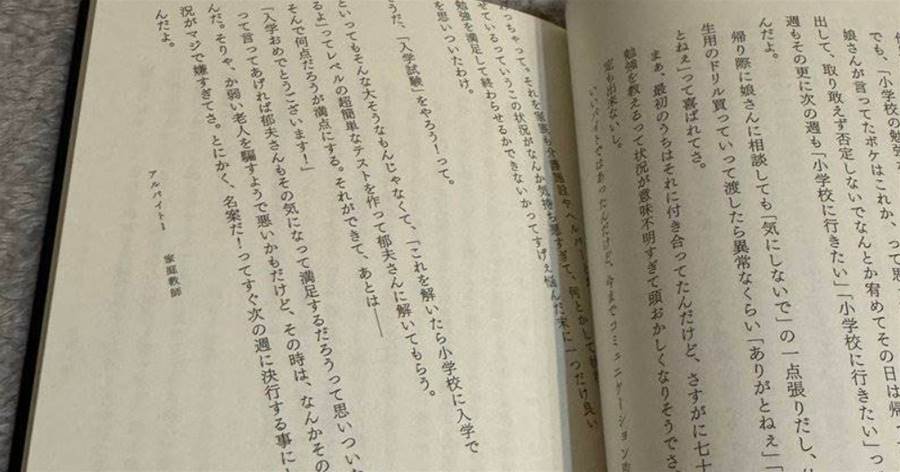 でも、「小学校の勉強を
娘さんが言ってたボケはこれか、って思
出して、取り敢えず否定しないでなんとか宥めてその日は帰っ
週もその更に次の週も「小学校に行きたい」「小学校に行きたい」っ
んだよ。
帰り際に娘さんに相談しても「気にしないで」の一点張りだし、
生用のドリル買っていって渡したら異常なくらい「ありがとねぇ」「
とねぇ」って喜ばれてさ。
まぁ、最初のうちはそれに付き合ってたんだけど、さすがに七十
勉強を教えるって状況が意味不明すぎて頭おかしくなりそうでさ
も出来ないし。
いいバイトではあったんだけど、今までコミュニケーション
っちゃって。それを家族も介護施設やヘルパー
せているっていうこの状況がなんか気持ち悪すぎて、何とかして
勉強を満足して終わらせるかできないかってすげぇ悩んだ末に一つだけ良い
を思いついたわけ。
うだ、「入学試験」をやろう!って。
といってもそんな大そうなもんじゃなくて、「これを解いたら小学校に入学で
るよ」ってレベルの超簡単なテストを作って郁夫さんに解いてもらう。
そんで何点だろうが満点にする。それができて、あとは――
「入学おめでとうございます!」
って言ってあげれば郁夫さんもその気になって満足するだろうって思いつい
んだ。そりゃ、か弱い老人を騙すようで悪いかもだけど、その時は、なんかその
況がマジで嫌すぎてさ。とにかく、名案だ!ってすぐ次の週に決行する事に
んだよ。
アルバイト1 家庭教師